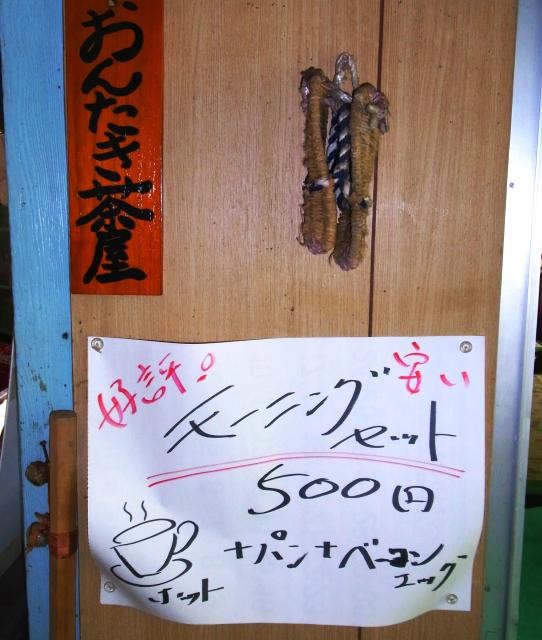 おんたき茶屋
好評!
安い
モーニング
セット
500円
+パン+ベーコン
エッグ
ホット